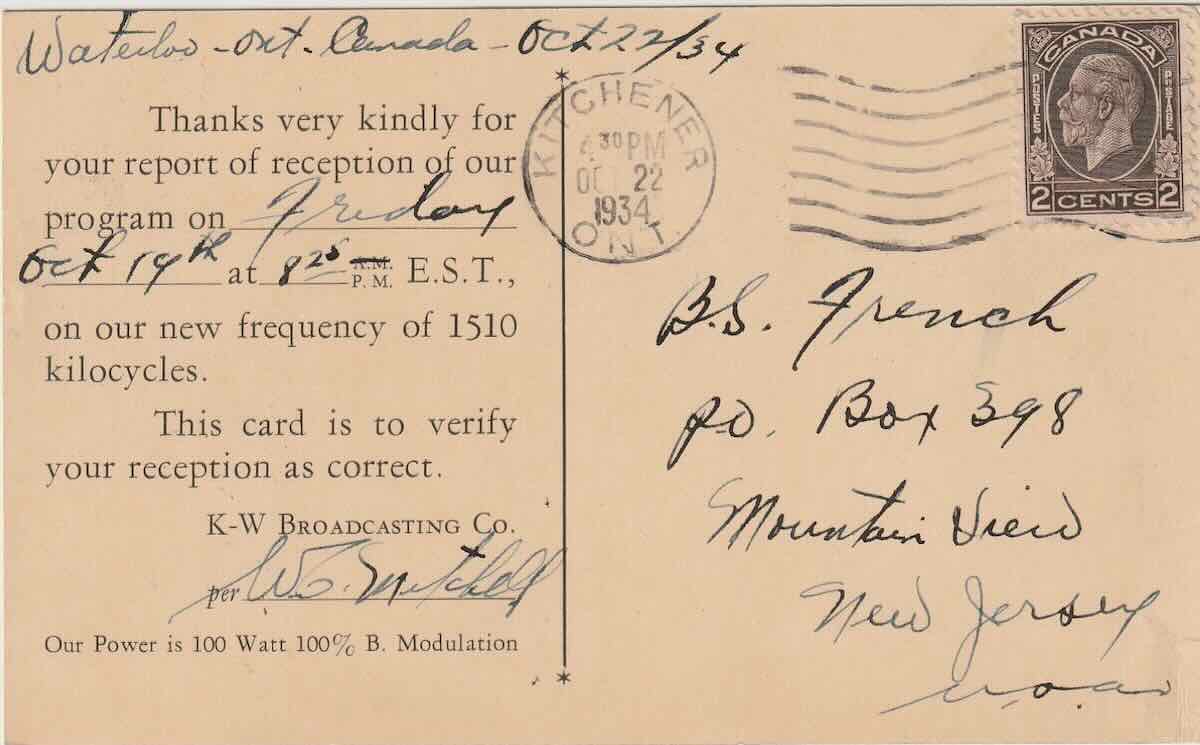 Waterloo - Ont. Canada - Oct 22/34
Thanks very kindly for
your report of reception of our
program on Friday
Oct 19th at 8 25 A.M. P.M. E.S.T.,
on our new frequency of 1510
kilocycles.
This card is to verify
your reception as correct.
K-W BROADCASTING CO.
per W.C. Mitchell
Our Power is 100 Watt 100% B. Modulation
KITCHENER
4 30 PM
OCT 22
1934
ONT.
CANADA
POSTES
POSTAGE
2 CENTS 2
B.S. French
P.O. Box 398
Mountain View
New Jersey
U.S.A.